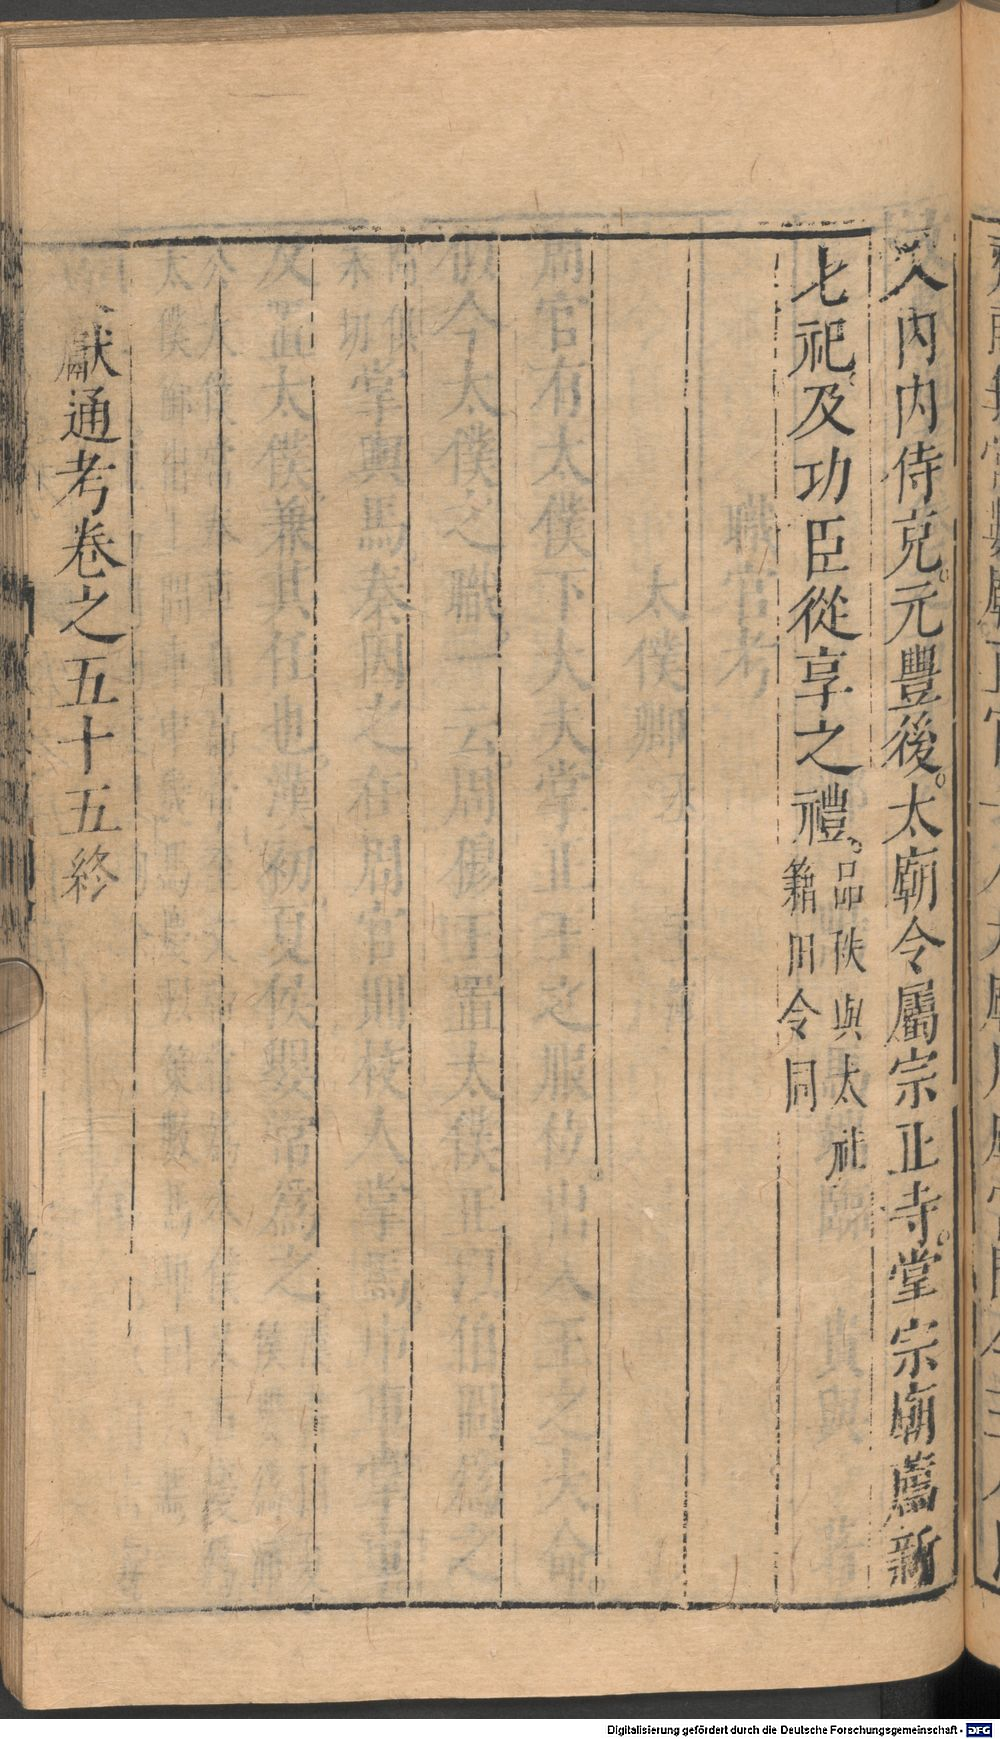 人内内侍充。元豐後。太廟令屬宗正寺。掌宗廟薦新
七祀。及功臣從享之禮。品秩與太社
籍田令同
獻通考卷之五十五終
Digitalisierung gefördert durch die Deutsche Forschungsgemeinschaft - DFG